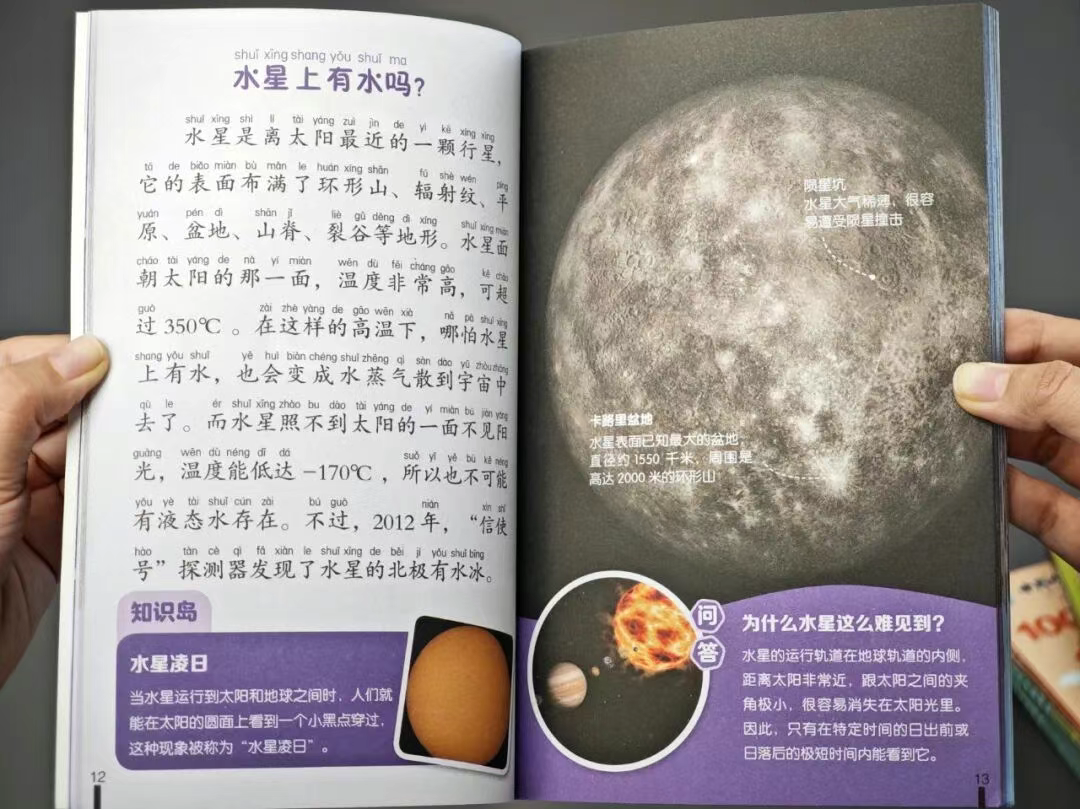 shuǐ xīng shang yǒu shuǐ ma
水星上有水吗?
shuǐ xīng shì lí tài yáng zuì jìn de yì kē xíng xīng
水星是离太阳最近的一颗行星,
tā de biǎo miàn bù mǎn le huán xíng shān fú shè wén píng
它的表面布满了环形山、辐射纹、平
yuán pén dì shān jǐ liè gǔ děng dì xíng shuǐ xīng miàn
原、盆地、山脊、裂谷等地形。水星面
cháo tài yáng de nà yí miàn wēn dù fēi cháng gāo kě chāo
朝太阳的那一面,温度非常高,可超
guò zài zhè yàng de gāo wēn xià nǎ pà shuǐ xīng
过350℃。在这样的高温下,哪怕水星
shang yǒu shuǐ yě huì biàn chéng shuǐ zhēng qì sàn dào yǔ zhòu zhōng
上有水,也会变成水蒸气散到宇宙中
qù le ér shuǐ xīng zhào bu dào tài yáng de yí miàn bú jiàn yáng
去了。而水星照不到太阳的一面不见阳
guāng wēn dù néng dī dá suǒ yǐ yě bù kě néng
光,温度能低达-170℃,所以也不可能
yǒu yè tài shuǐ cún zài bú guò nián xìn shǐ
有液态水存在。不过,2012年,“信使
hào tàn cè qì fā xiàn le shuǐ xīng de běi jí yǒu shuǐ bīng
号”探测器发现了水星的北极有水冰。
知识岛
水星凌日
当水星运行到太阳和地球之间时,人们就
能在太阳的圆面上看到一个小黑点穿过,
这种现象被称为“水星凌日”。
12
陨星坑
水星大气稀薄、很容
易遭受陨星撞击
卡路里盆地
水星表面已知最大的盆地,
直径约1550千米,周围是
高达2000米的环形山
问
答
为什么水星这么难见到?
水星的运行轨道在地球轨道的内侧,
距离太阳非常近,跟太阳之间的夹
角极小,很容易消失在太阳光里。
因此,只有在特定时间的日出前或
日落后的极短时间内能看到它。
13